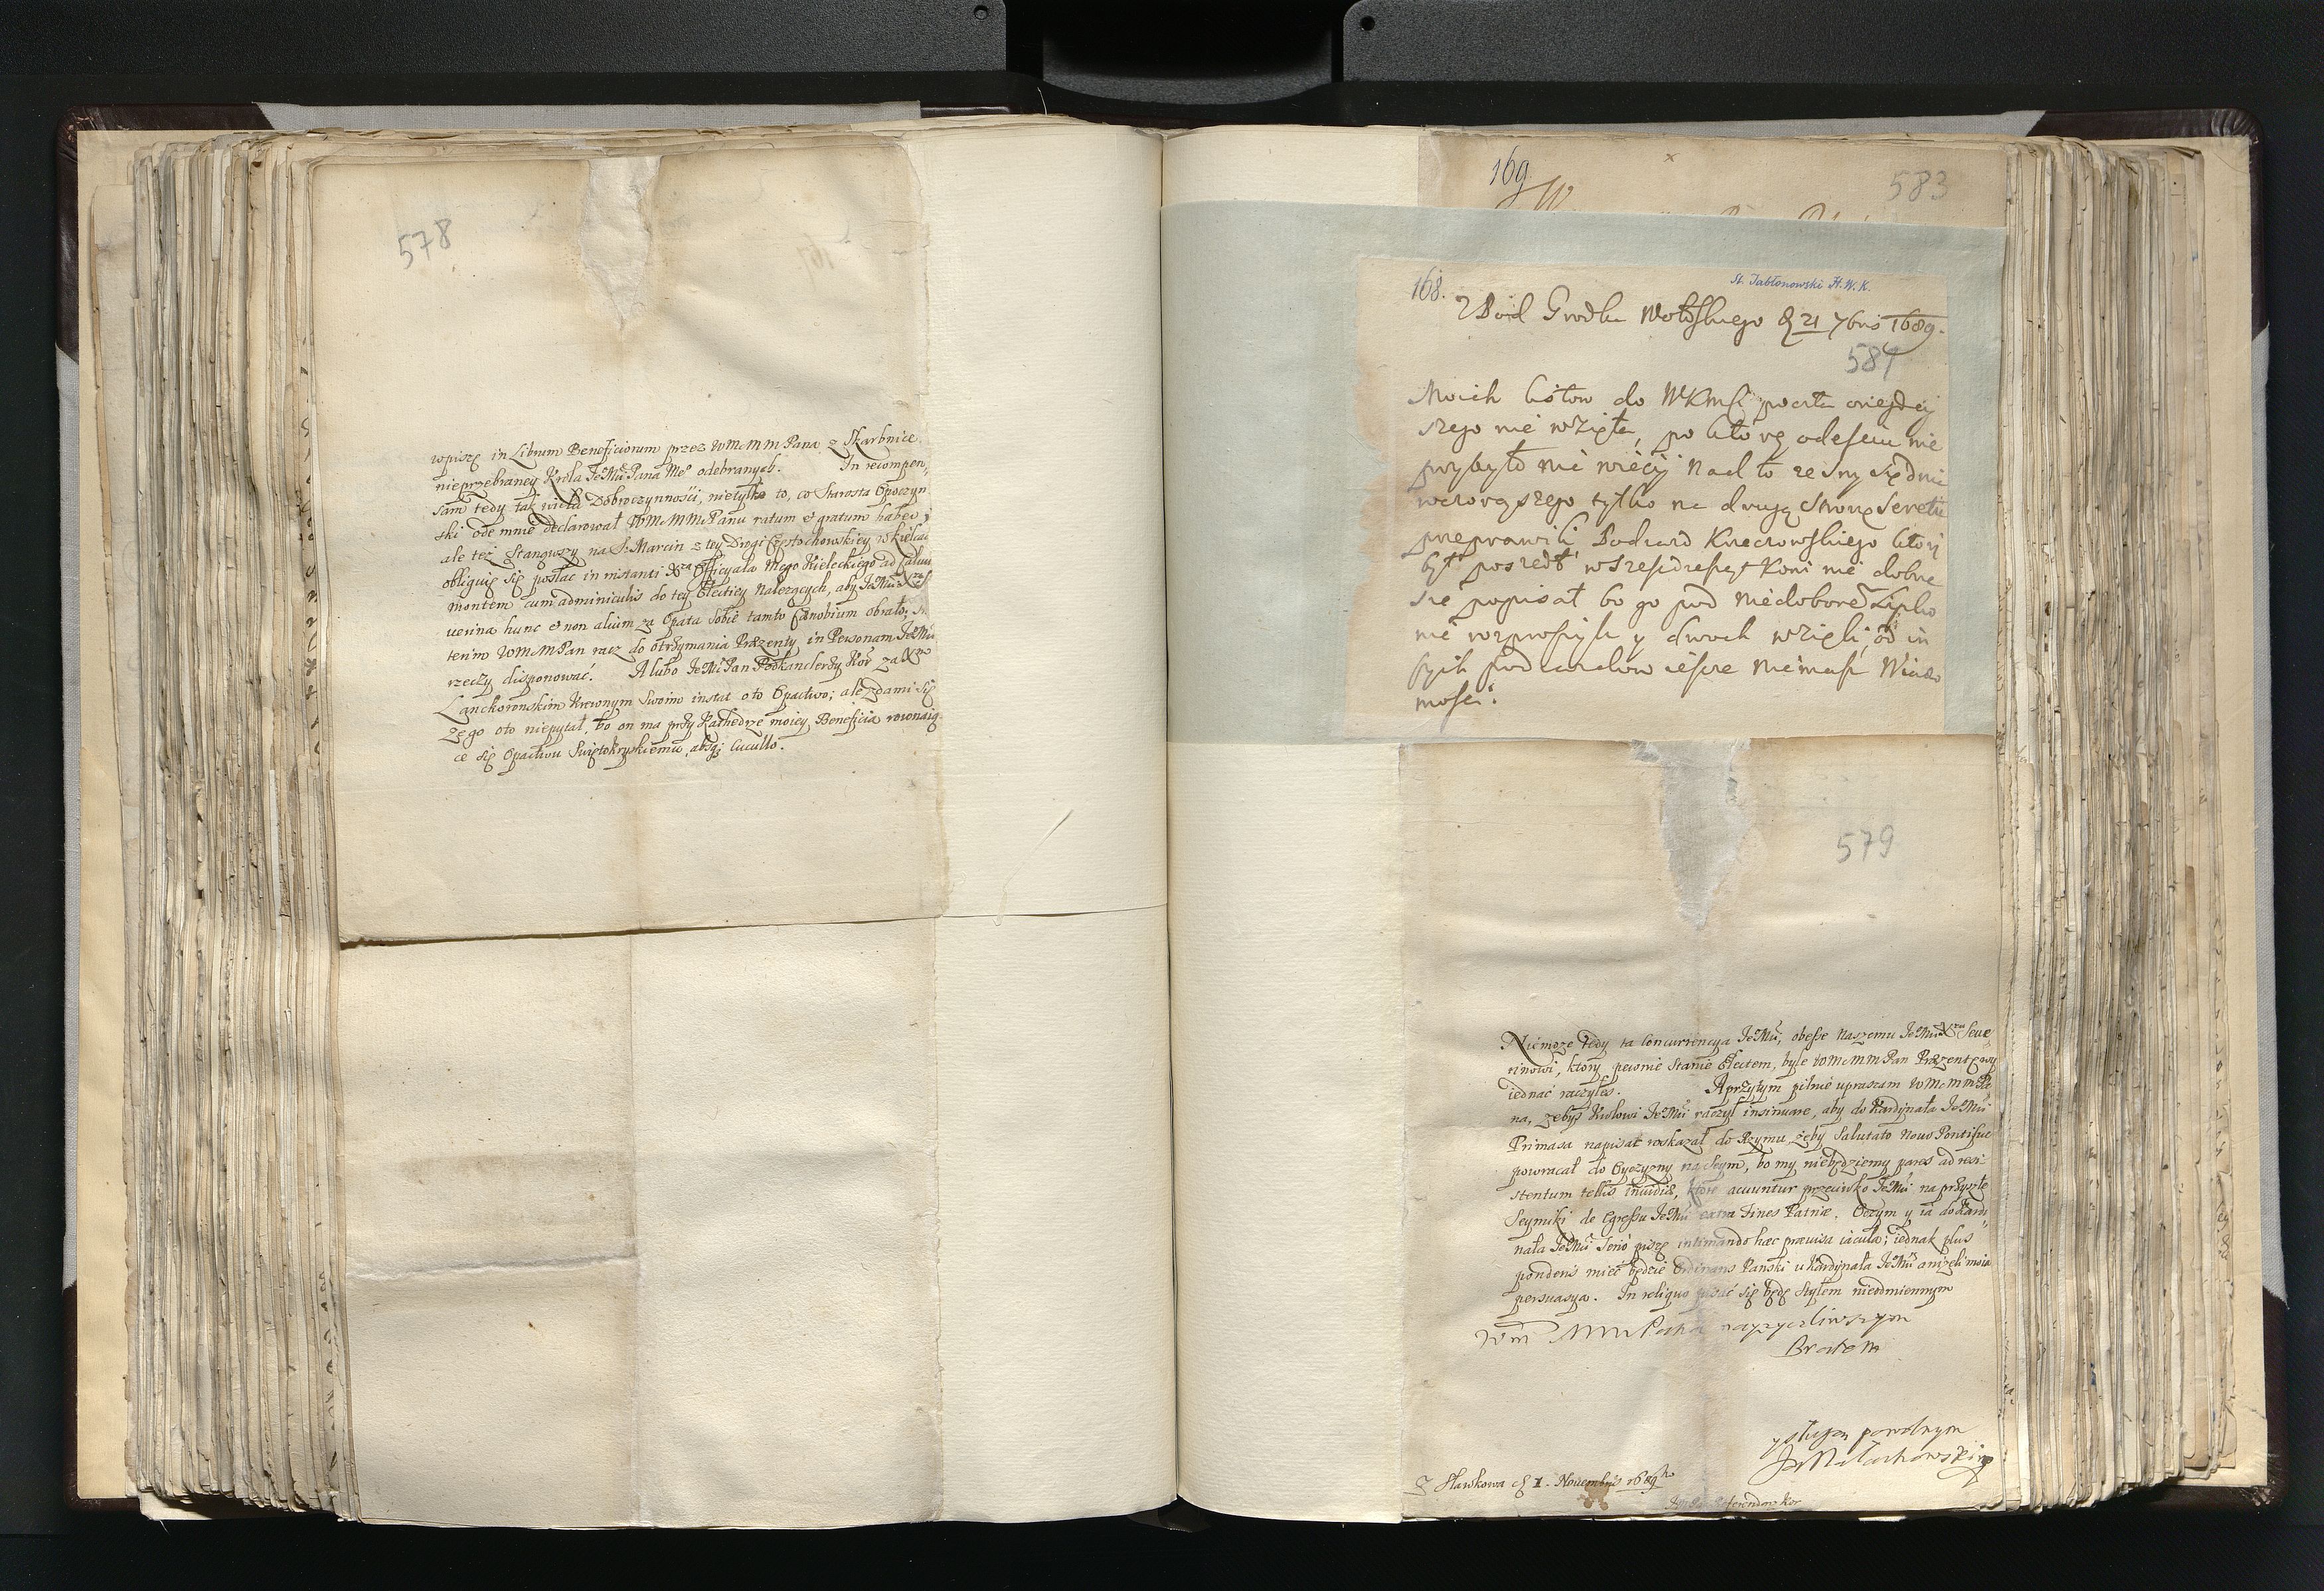 578
wpiszę in Librum Beneficiorum przez WMcMM Pana z Skarbnice
nieprzebraney Krola JeMći Pana Mego odebranych. In recompen,
sam tedy tak wielu Dobroczynnosći, nietylko to, co Starosta Opoczyn
ski ode mnie declarował WMcMM Panu ratum et gratum habeo,
ale też stanąwszy na S. Marcin z tey Drogi Częstochowskiey w Kielcach
obliguię się posłac in instanti Xza Officyała Mego Kieleckiego ad Calvum
montem cum adminiculis do tey Electiey należących, aby JeMći Xza Se
uerina hunc et non alium za Opata sobie tamto Cœnobium obrało; In
terim WMcMPan racz do otrzymania Præzenty in Personam JeMći
rzeczy disponować. Alubo JeMći Pan Podkanclerży Kor za Xzem
Lanckoronskim Krewnym Swoim instat o to Opactwo; ale zdami się
żego oto niepytał, bo on ma przy Kathedrze moiey Beneficia rownaią
ce się Opactwu Swiętokrzyskiemu, absq; cucullo.
169.
583
168.
St. Jabłonowski H.W.K.
Grodku Wołoskiego d 21 7bris 1689.
584
Moich listow do WKMsci poczta
szego nie wzięła, po ktorey odesciu nie
przybyło nic więcy nad to ze smy się dnia
wczoraszego tylko na drugą stronę Seretu
przeprawili Podiazd Kneczowskiego ktory
był poszedł w szescdziesiąt koni nie dobrze
sie popisał bo go pod
nie rozproszyli y dwoch wzieli, od in
szych podiazdow iescze niemasz Wiado
mosci.
579
Niemoże tedy ta Concurrencya JeMći, obesse Naszemu JeMći Xzu Seue
rinowi, ktory pewnie stanie Electem, byle WMcMMPan Præzentę wy
iednać raczyłeś. Aprzytym pilnie upraszam WMcMMPa
na, żebyś Krolowi JeMći raczył insinuare, aby do Kardynała JeMći
Primasa napisać wskazał do Rzymu, żeby Salutato Nouo Pontifice
powracał do Oyczyzny na Seym, bo my niebędziemy pares ad resi
stentum tellis inuidiæ, ktore acuuntur przeciwko JeMći na przyszłe
Seymiki de Egressu JeMći extra Fines Patriæ. Oczym y ia do Kardy
nała JeMći Serio piszę intimando hæc præuisa iacula; iednak plus
ponderis mieć będzie Ordinans Pański u Kardynała JeMći aniżeli moia
persuasya. In reliquo pisać się będę Stylem nieodmiennym
Wm MM Pana nayzyczliwszym
Bratem
y sługą powolnym
J Małachowski
Z Sławkowa d 1. Nouembris 1689
Referendarz Kor